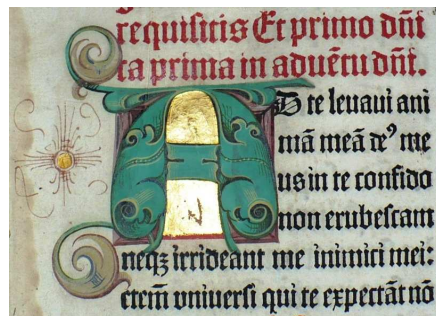 requisitis Et primo dñi
ca prima in aduẽtu dñi.
AD te leuaui ani
mã meã deꝰ me
us in te confido
non erubescam
neqꝫ irrideant me inimici mei:
etem̃ vniuersi qui te expectãt nõ